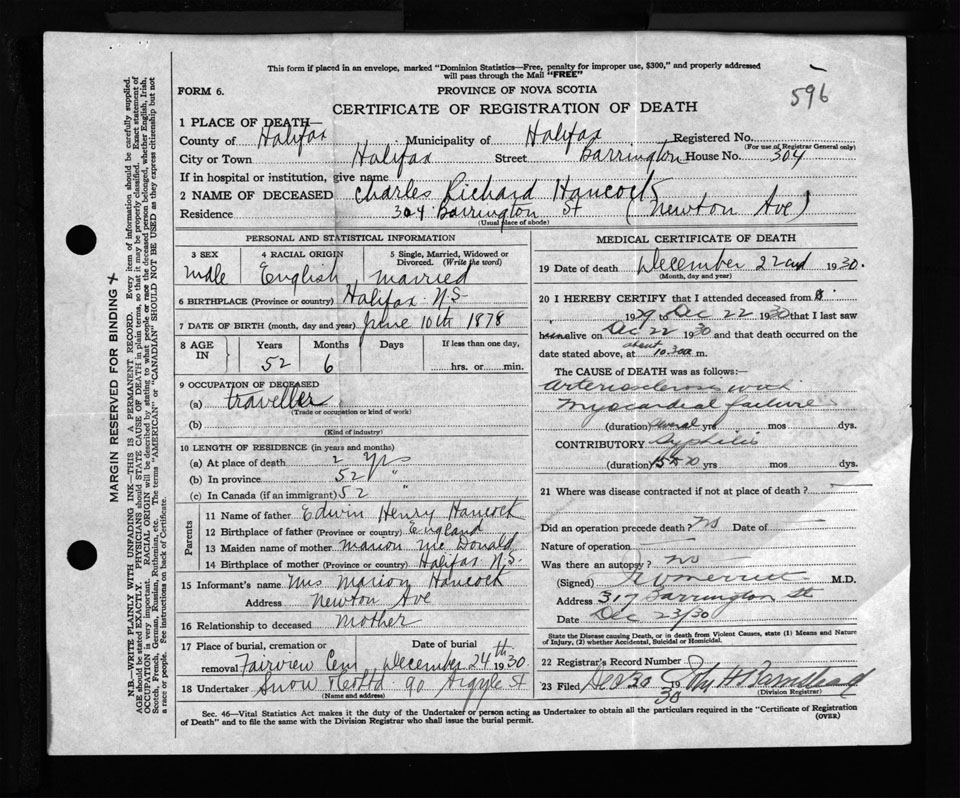 This form if placed in an envelope, marked "Dominion Statistics—Free, penalty for improper use, $300," and properly addressed
will pass through the Mail "FREE"
596
FORM 6.
PROVINCE OF NOVA SCOTIA
CERTIFICATE OF REGISTRATION OF DEATH
1 PLACE OF DEATH—
County of Halifax Municipality of Halifax Registered No.
(For use of Registrar General only)
City or Town Halifax Street Barrington House No. 304
If in hospital or institution, give name
2 NAME OF DECEASED Charles Richard Hancock
Residence 304 Barrington St (Newton Ave)
(Usual place of abode)
PERSONAL AND STATISTICAL INFORMATION
3 SEX 4 RACIAL ORIGIN 5 Single, Married, Widowed or
Divorced. (Write the word)
Male English married
6 BIRTHPLACE (Province or country) Halifax N.S.
7 DATE OF BIRTH (month, day and year) June 10th 1878
8 AGE IN Years Months Days If less than one day,
52 6 hrs. or min.
9 OCCUPATION OF DECEASED
(a) traveller
(Trade or occupation or kind of work)
(b)
(Kind of industry)
10 LENGTH OF RESIDENCE (in years and months)
(a) At place of death 2 yrs
(b) In province 52 "
(c) In Canada (if an immigrant) 52 "
Parents
11 Name of father Edwin Henry Hancock
12 Birthplace of father (Province or country) England
13 Maiden name of mother Marion McDonald
14 Birthplace of mother (Province or country) Halifax N.S.
15 Informant's name Mrs Marion Hancock
Address Newton Ave
16 Relationship to deceased Mother
17 Place of burial, cremation or Date of burial
removal Fairview Cem December 24th 1930.
18 Undertaker Snow & Co Ltd 90 Argyle St
(Name and address)
MEDICAL CERTIFICATE OF DEATH
19 Date of death December 22nd 1930.
(Month, day and year)
20 I HEREBY CERTIFY that I attended deceased from
1929 to Dec 22 1930 that I last saw
him alive on Dec 22 1930 and that death occurred on the
date stated above, at about 10.30 m.
The CAUSE OF DEATH was as follows:—
Arteriosclerosis with
Myocardial failure
(duration) several yrs mos dys.
CONTRIBUTORY Syphilis
(duration) 15-20 yrs mos dys.
21 Where was disease contracted if not at place of death?
Did an operation precede death? No Date of
Nature of operation
Was there an autopsy? No
(Signed) M.D.
Address 317 Barrington St
Date Dec 23/30
State the Disease causing Death, or in death from Violent Causes, state (1) Means and Nature
of Injury, (2) whether Accidental, Suicidal or Homicidal.
22 Registrar's Record Number
23 Filed Dec 30 1930 John H Barnstead
(Division Registrar)
Sec. 46—Vital Statistics Act makes it the duty of the Undertaker or person acting as Undertaker to obtain all the particulars required in the "Certificate of Registration
of Death" and to file the same with the Division Registrar who shall issue the burial permit.
(OVER)
MARGIN RESERVED FOR BINDING
N.B.—WRITE PLAINLY WITH UNFADING INK—THIS IS A PERMANENT RECORD. Every item of information should be carefully supplied.
AGE should be stated EXACTLY. PHYSICIANS should STATE CAUSE OF DEATH in plain terms, so that it may be properly classified. Exact statement of
OCCUPATION is very important. RACIAL ORIGIN will be described by stating to what people or race the deceased person belonged, whether English, Irish,
Scotch, French, German, Russian, Ruthenian, etc. The terms "AMERICAN" or "CANADIAN" SHOULD NOT BE USED as they express citizenship but not
a race or people. See instructions on back of Certificate.